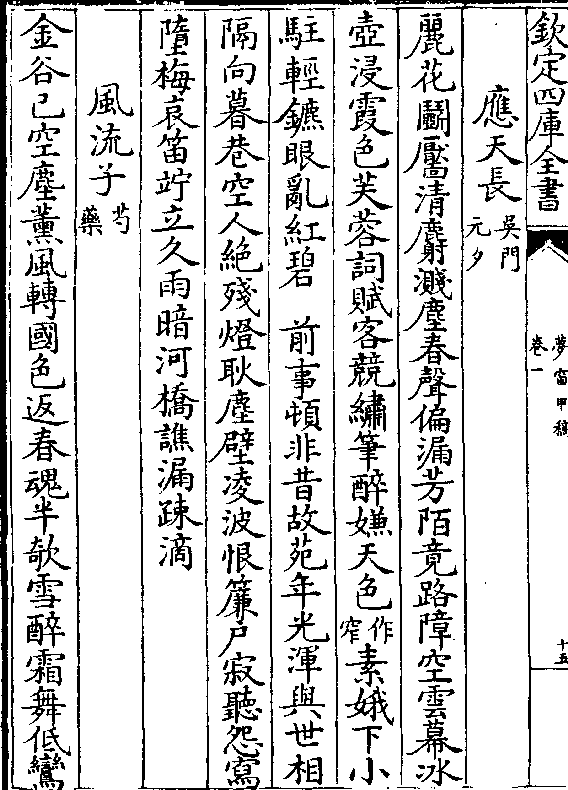 欽定四庫全書
夢窗甲稿
卷一
十五
應天長吳門元夕
麗花鬬靨清麝濺塵春聲偏漏芳陌竟路障空雲幕冰
壺浸霞色芙蓉詞賦客競繡筆醉嫌天色作窄素娥下小
駐輕鑣眼亂紅碧 前事頓非昔故苑年光渾與世相
隔向暮巷空人絶殘燈耿塵壁凌波恨簾户寂聽怨寫
墮梅哀笛竚立久雨暗河橋譙漏疎滴
風流子芍藥
金谷已空塵薰風轉國色返春魂半欹雪醉霜舞低鸞